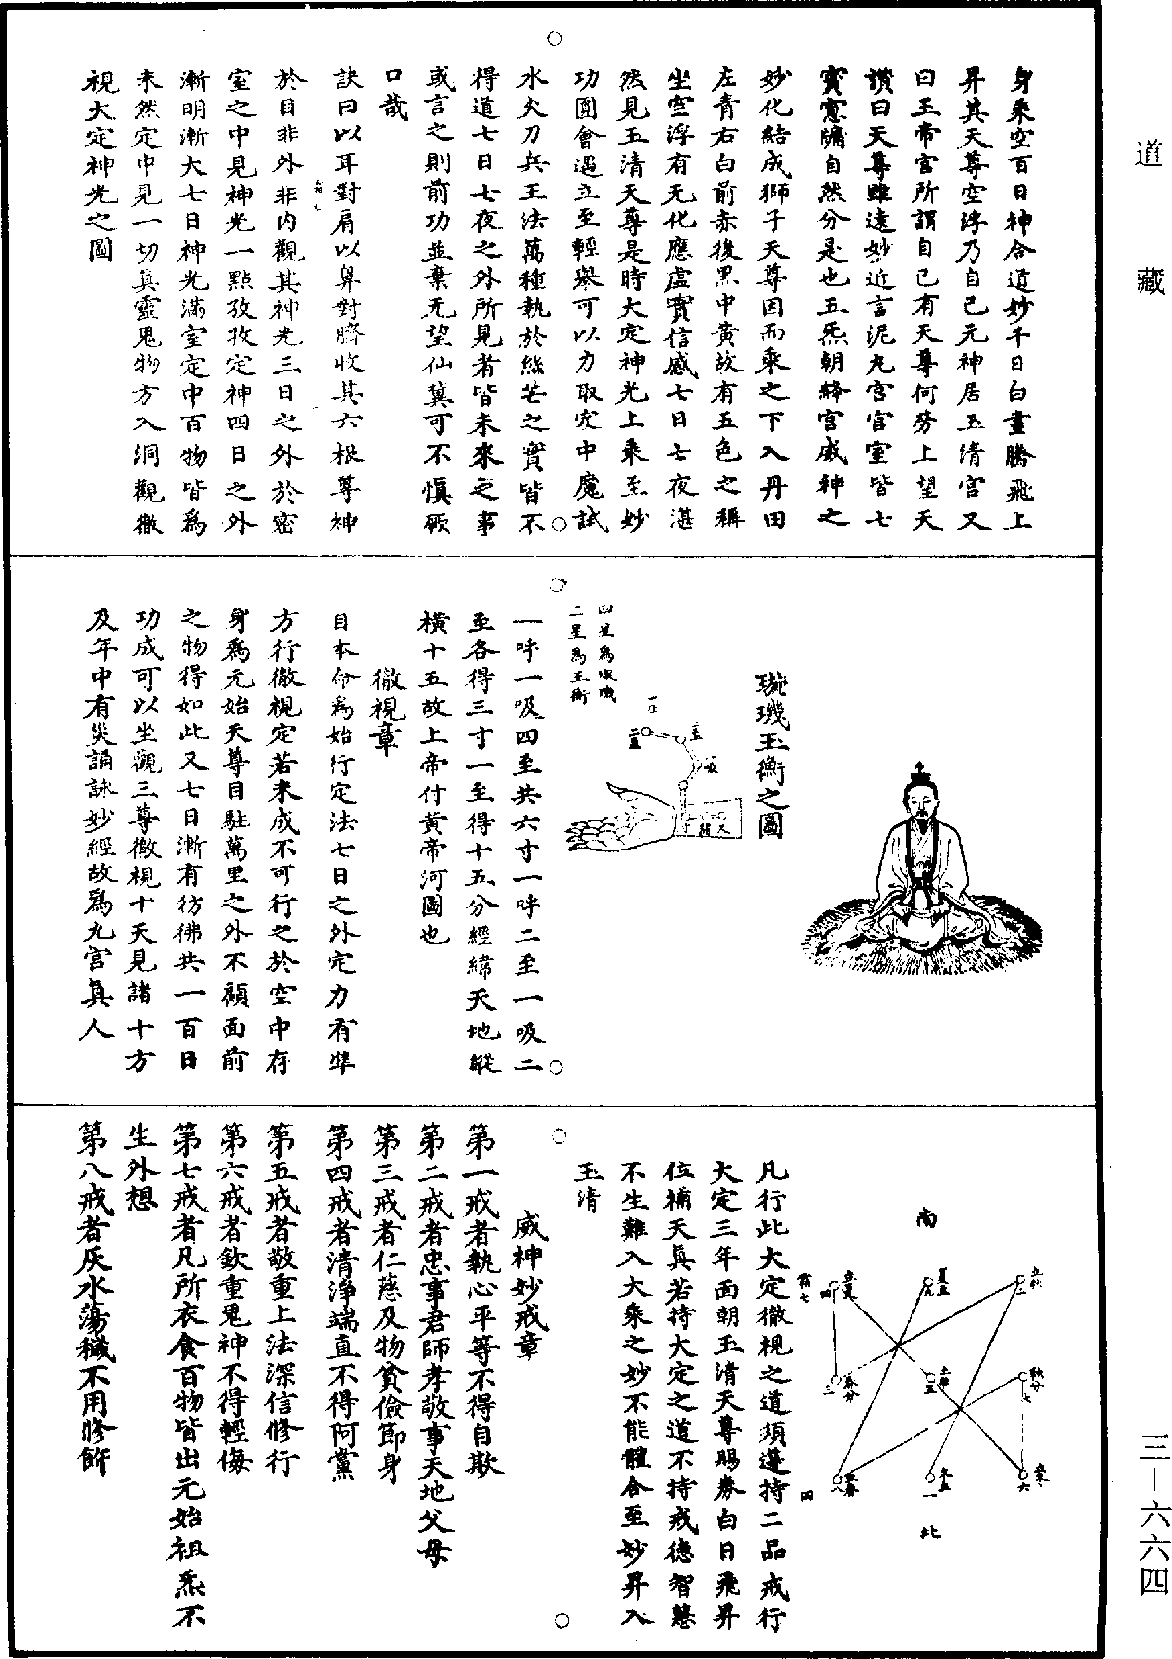 道藏
身乘空百日神合道妙千日白晝騰飛上
昇其天尊空浮乃自己元神居玉清宮又
曰玉帝宮所謂自己有天尊何勞上望天
讚曰天尊雖遠妙近言泥丸宮宮室皆七
寳窻牖自然分是也五炁朝絳宮威神之
妙化結成獅子天尊因而乘之下入丹田
左青右白前赤後黑中黃故有五色之稱
坐空浮有无化應虛實信感七日七夜湛
然見玉清天尊是時大定神光上乘至妙
功圓會遇立至輕舉可以力取定中魔試
水火刀兵王法萬種執於絲芒之實皆不
得道七日七夜之外所見者皆未來之事
或言之則前功並棄无望仙冀可不慎厥
口哉
訣曰以耳對肩以鼻對臍收其六根尊神
於目非外非内觀其神光三日之外於密
室之中見神光一點孜孜定神四日之外
漸明漸大七日神光滿室定中百物皆爲
未然定中見一切真靈鬼物方入洞觀徹
視大定神光之圖
璇璣玉衡之圖
四星爲璇璣
二星爲玉衡
一呼一吸四至共六寸一呼二至一吸二
至各得三寸一至得十五分經緯天地縱
橫十五故上帝付黃帝河圖也
徹視章
目本命爲始行定法七日之外定力有準
方行徹視定若未成不可行之於空中存
身爲元始天尊目駐萬里之外不顧面前
之物得如此又七日漸有彷彿共一百日
功成可以坐觀三尊徹視十天見諸十方
及年中有災誦詠妙經故爲九宮真人
南
立秋
二
夏至
九
立夏
四
秋分
七
五
春分
三
六
冬至
一
立春
八
北
凡行此大定徹視之道須遵持二品戒行
大定三年面朝玉清天尊賜券白日飛昇
位補天真若持大定之道不持戒德智慧
不生難入大乘之妙不能體合至妙昇入
玉清
威神妙戒章
第一戒者執心平等不得自欺
第二戒者忠事君師孝敬事天地父母
第三戒者仁慈及物貧儉節身
第四戒者清淨端直不得阿黨
第五戒者敬重上法深信修行
第六戒者欽重鬼神不得輕侮
第七戒者凡所衣食百物皆出元始祖炁不
生外想
第八戒者灰水蕩穢不用修飾
三－六六四